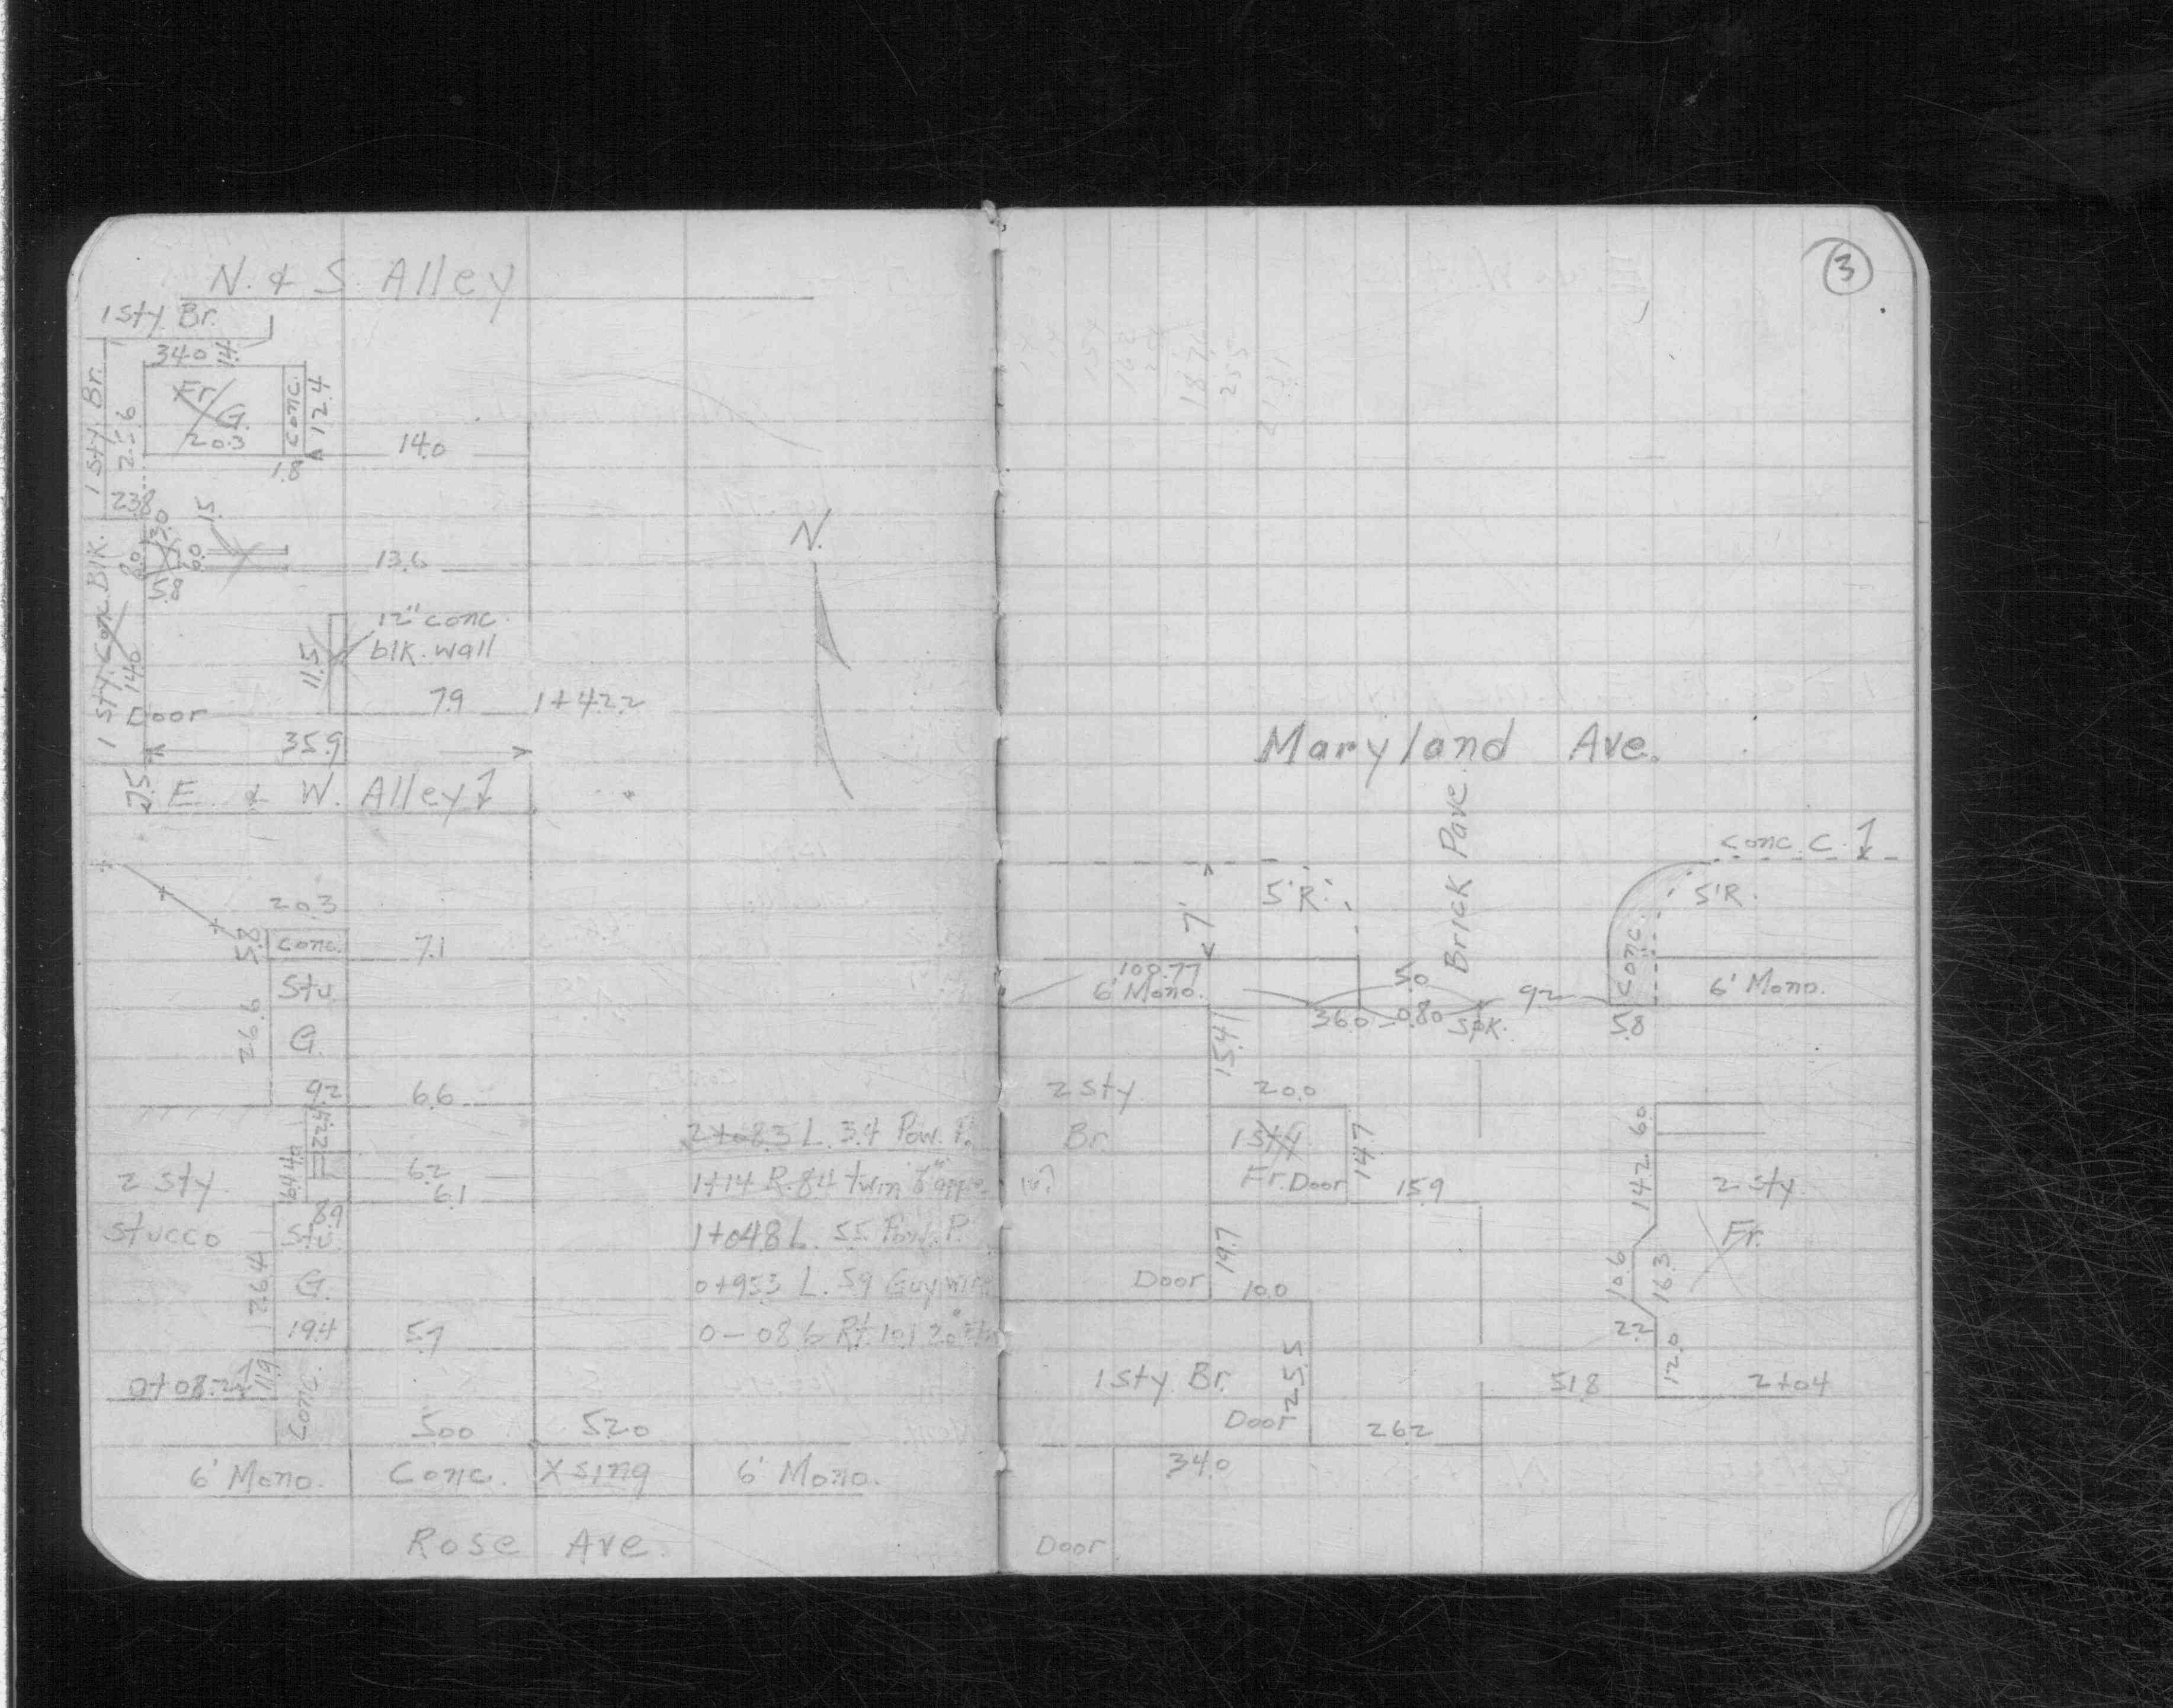 N. & S. Alley
1 sty. Br.
34.0
14.
1 sty. Br.
25.6
Fr.
G.
20.3
Conc.
12.4
1.8
14.0
23.8
15.
13.0
8.0
6.0
5.8
13.6
N.
1 sty. Conc. Blk.
14.0
11.5
12" conc.
blk. wall
7.9
1+42.2
Door
35.9
7.5
E. & W. Alley
20.3
5.8
Conc.
7.1
26.6
Stu.
G.
9.2
6.6
22.4
2+08.3 L. 3.4 Pow. P.
2 sty
stucco
6.2
6.1
1+14 R. 8.4 twin 8"
8.9
Stu.
1+04.8 L. 5.5 Pow. P.
26.4
G.
0+95.3 L. 5.9 Guy wire
19.4
5.7
0-08.6 Rt. 10.1 20"
0+08.2
11.9
Conc.
50.0
52.0
6' Mono.
Conc.
Xsing
6' Mono.
Rose Ave.
3
Maryland Ave.
Brick Pave.
Conc. C.
5'R.
5'R.
7'
Conc.
100.77
6' Mono.
5.0
9.2
6' Mono.
36.0
0.80
Spk.
5.8
15.4
2 sty
Br.
20.0
1 sty
Fr.
Door
14.7
15.9
6.0
14.2
2 sty
Fr.
19.7
Door
10.0
10.6
16.3
2.2
12.0
1 sty Br.
25.5
Door
51.8
2+04
26.2
34.0
Door